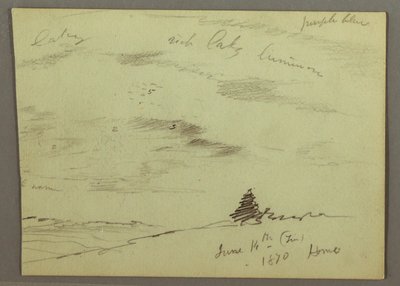 purple blue
Laky rich Laky luminous
5
2 3
warm
June 14th (Tu)
1870 Home